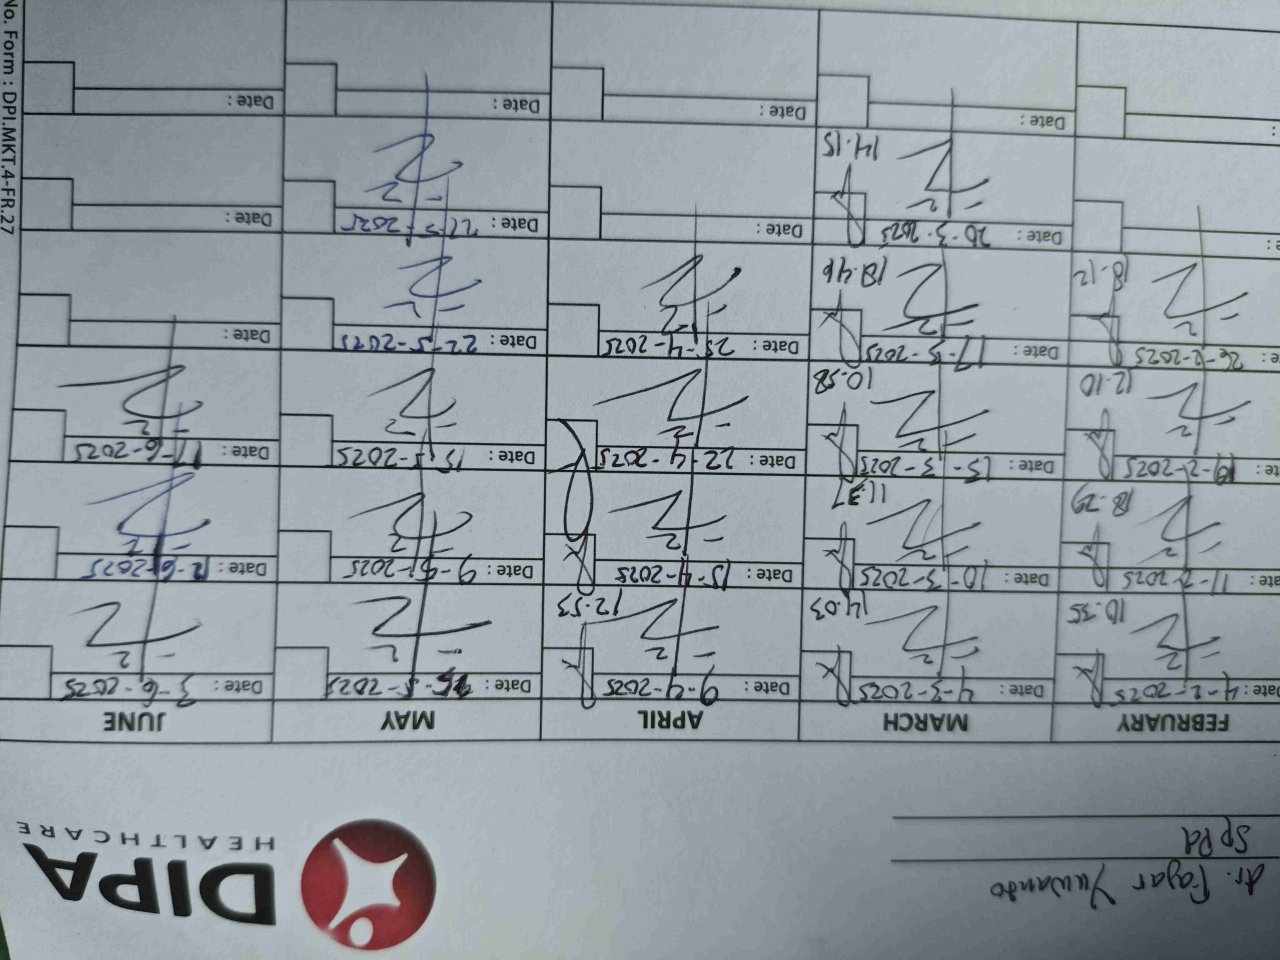 dr. Fajar Yuwanto
SpPd
DIPA
HEALTHCARE
FEBRUARY MARCH APRIL MAY JUNE
Date: 4-2-2025 Date: 4-3-2025 Date: 9-4-2025 Date: Date: 3-6-2025
10.35 14.03 12.53
11-2-2025 Date: 10-3-2025 Date: 15-4-2025 Date: 9-5-2025 Date: 12-6-2025
18.29 11.37
19-2-2025 Date: 13-3-2025 Date: 22-4-2025 Date: 15-5-2025 Date: 17-6-2025
12.10 10.58
26-2-2025 Date: 17-3-2025 Date: 25-4-2025 Date: 22-5-2025 Date:
18.12 18.46
Date: 20-3-2025 Date: Date: Date:
14.15
Date: Date: Date: Date:
No. Form : DPI.MKT.4-FR.27